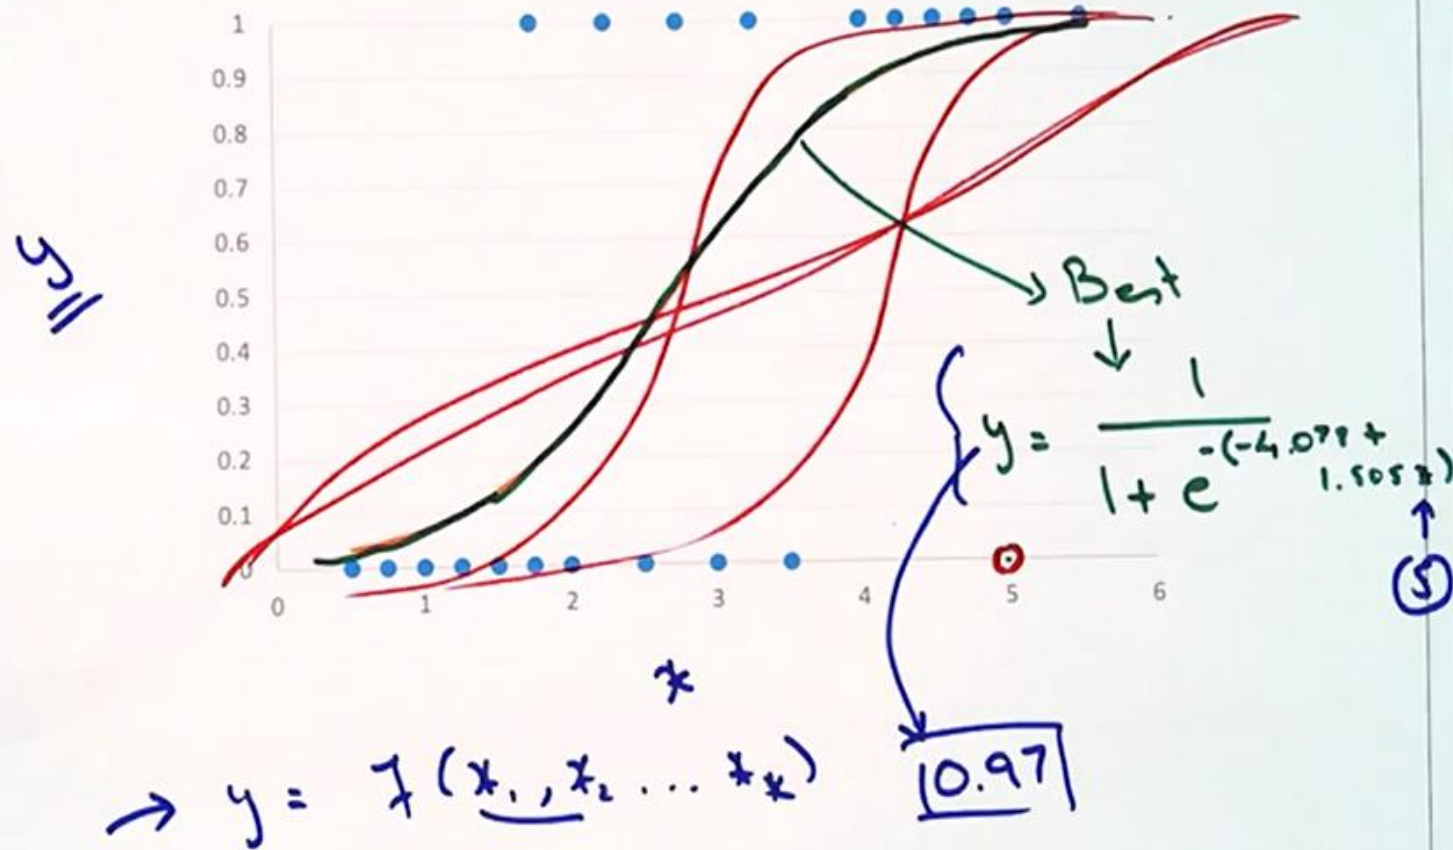 1
0.9
0.8
0.7
0.6
0.5
0.4
0.3
0.2
0.1
0
0 1 2 3 4 5 6
y
x
Best
y = 1 / 1 + e -(-4.078 + 1.505x)
5
0.97
y = f (x1, x2 ... xk)